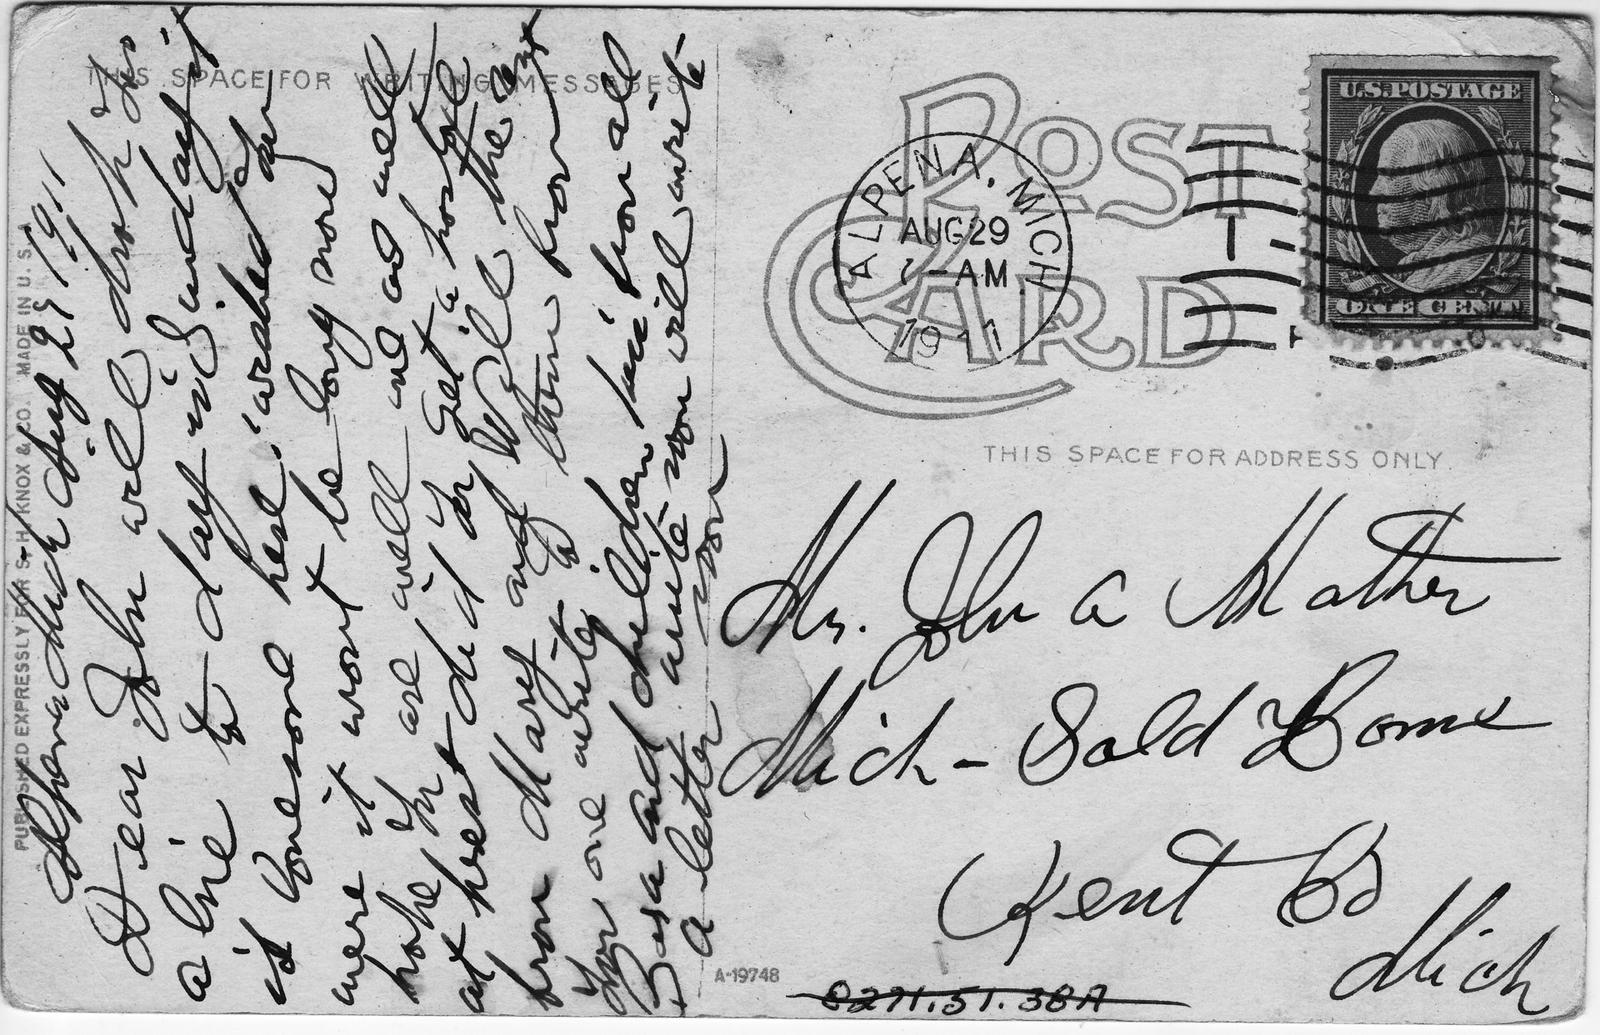 THIS SPACE FOR WRITING MESSAGES
PUBLISHED EXPRESSLY FOR S. H. KNOX & CO. MADE IN U. S.
Alpena Mich Aug 29 1911
Dear John will drop you
a line to day is Sunday it
is lonesome here wished you
were it wont be long now
hope you are well and as well
at post did you get a postal
from Mary and Will the one
you one write to them from
Rosa and children from all
a letter write soon will write
soon
POST CARD
ALPENA, MICH
AUG 29
-AM
1911
U.S. POSTAGE
ONE CENT
THIS SPACE FOR ADDRESS ONLY.
Mr. John A Mather
Mich - Sold Home
Kent Co
Mich
A-19748
8271.51.38A